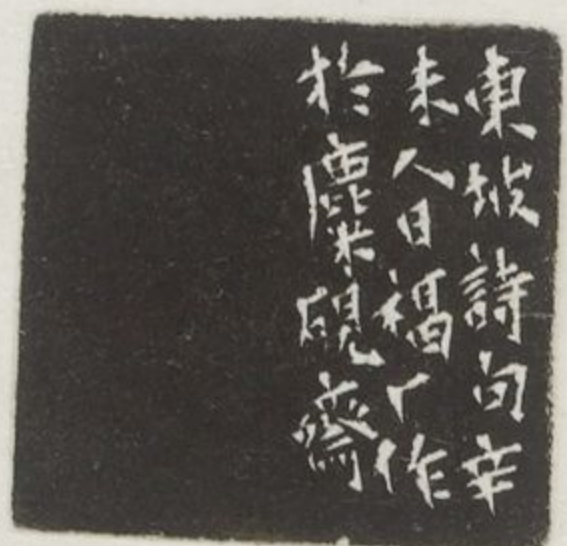 東坡詩句辛
未人日福厂作
於麋硯齋